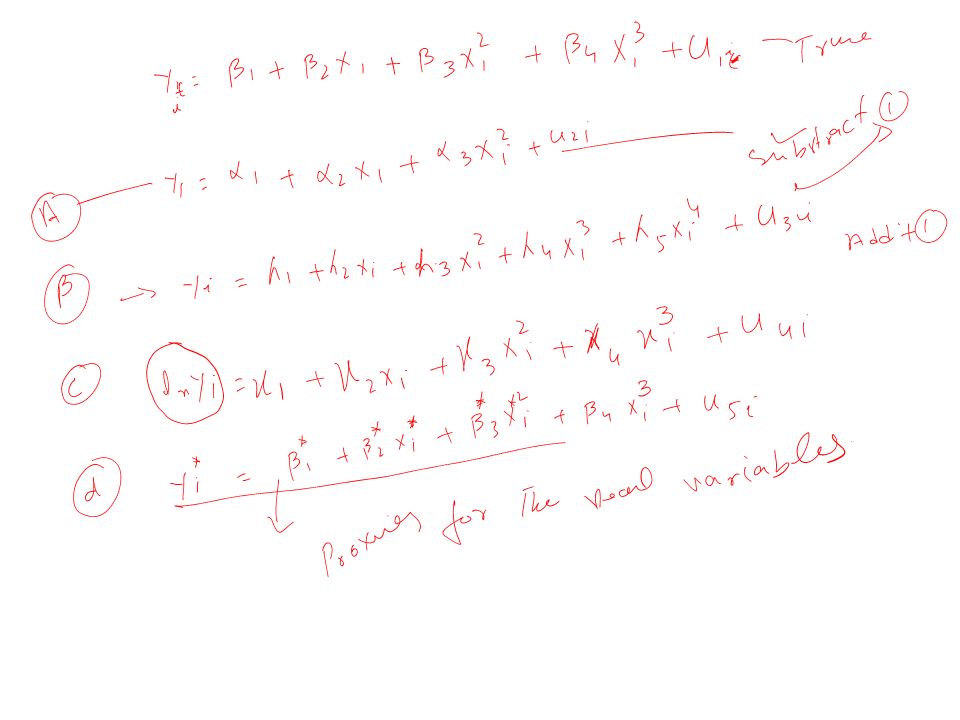 Yi = β1 + β2X1 + β3Xi² + β4Xi³ + U1i — True
A — Yi = α1 + α2X1 + α3Xi² + U2i Subtract ①
B → Yi = λ1 + λ2Xi + λ3Xi² + λ4Xi³ + λ5Xi⁴ + U3i Addit ①
C lnYi = γ1 + γ2Xi + γ3Xi² + γ4Xi³ + U4i
d Yi* = β1* + β2*Xi* + β3*Xi*² + β4Xi³ + U5i
Proxies for The real variables